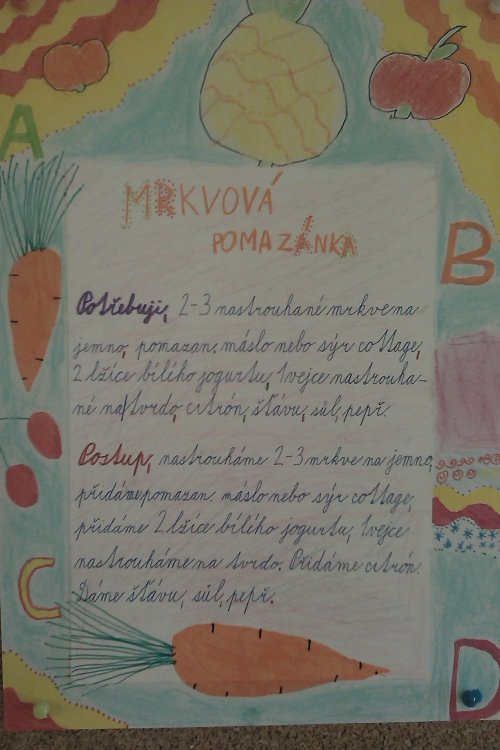 A
MRKVOVÁ
POMAZÁNKA
B
Potřebuji, 2-3 nastrouhané mrkve na
jemno, pomazan. máslo nebo sýr cottage,
2 lžíce bílého jogurtu, 1 vejce nastrouha-
né na tvrdo, citrón, šťávu, sůl, pepř.
Postup, nastrouháme 2-3 mrkve na jemno,
přidáme pomazan. máslo nebo sýr cottage,
přidáme 2 lžíce bílého jogurtu, 1 vejce
nastrouháme na tvrdo. Přidáme citrón.
Dáme šťávu, sůl, pepř.
C
D